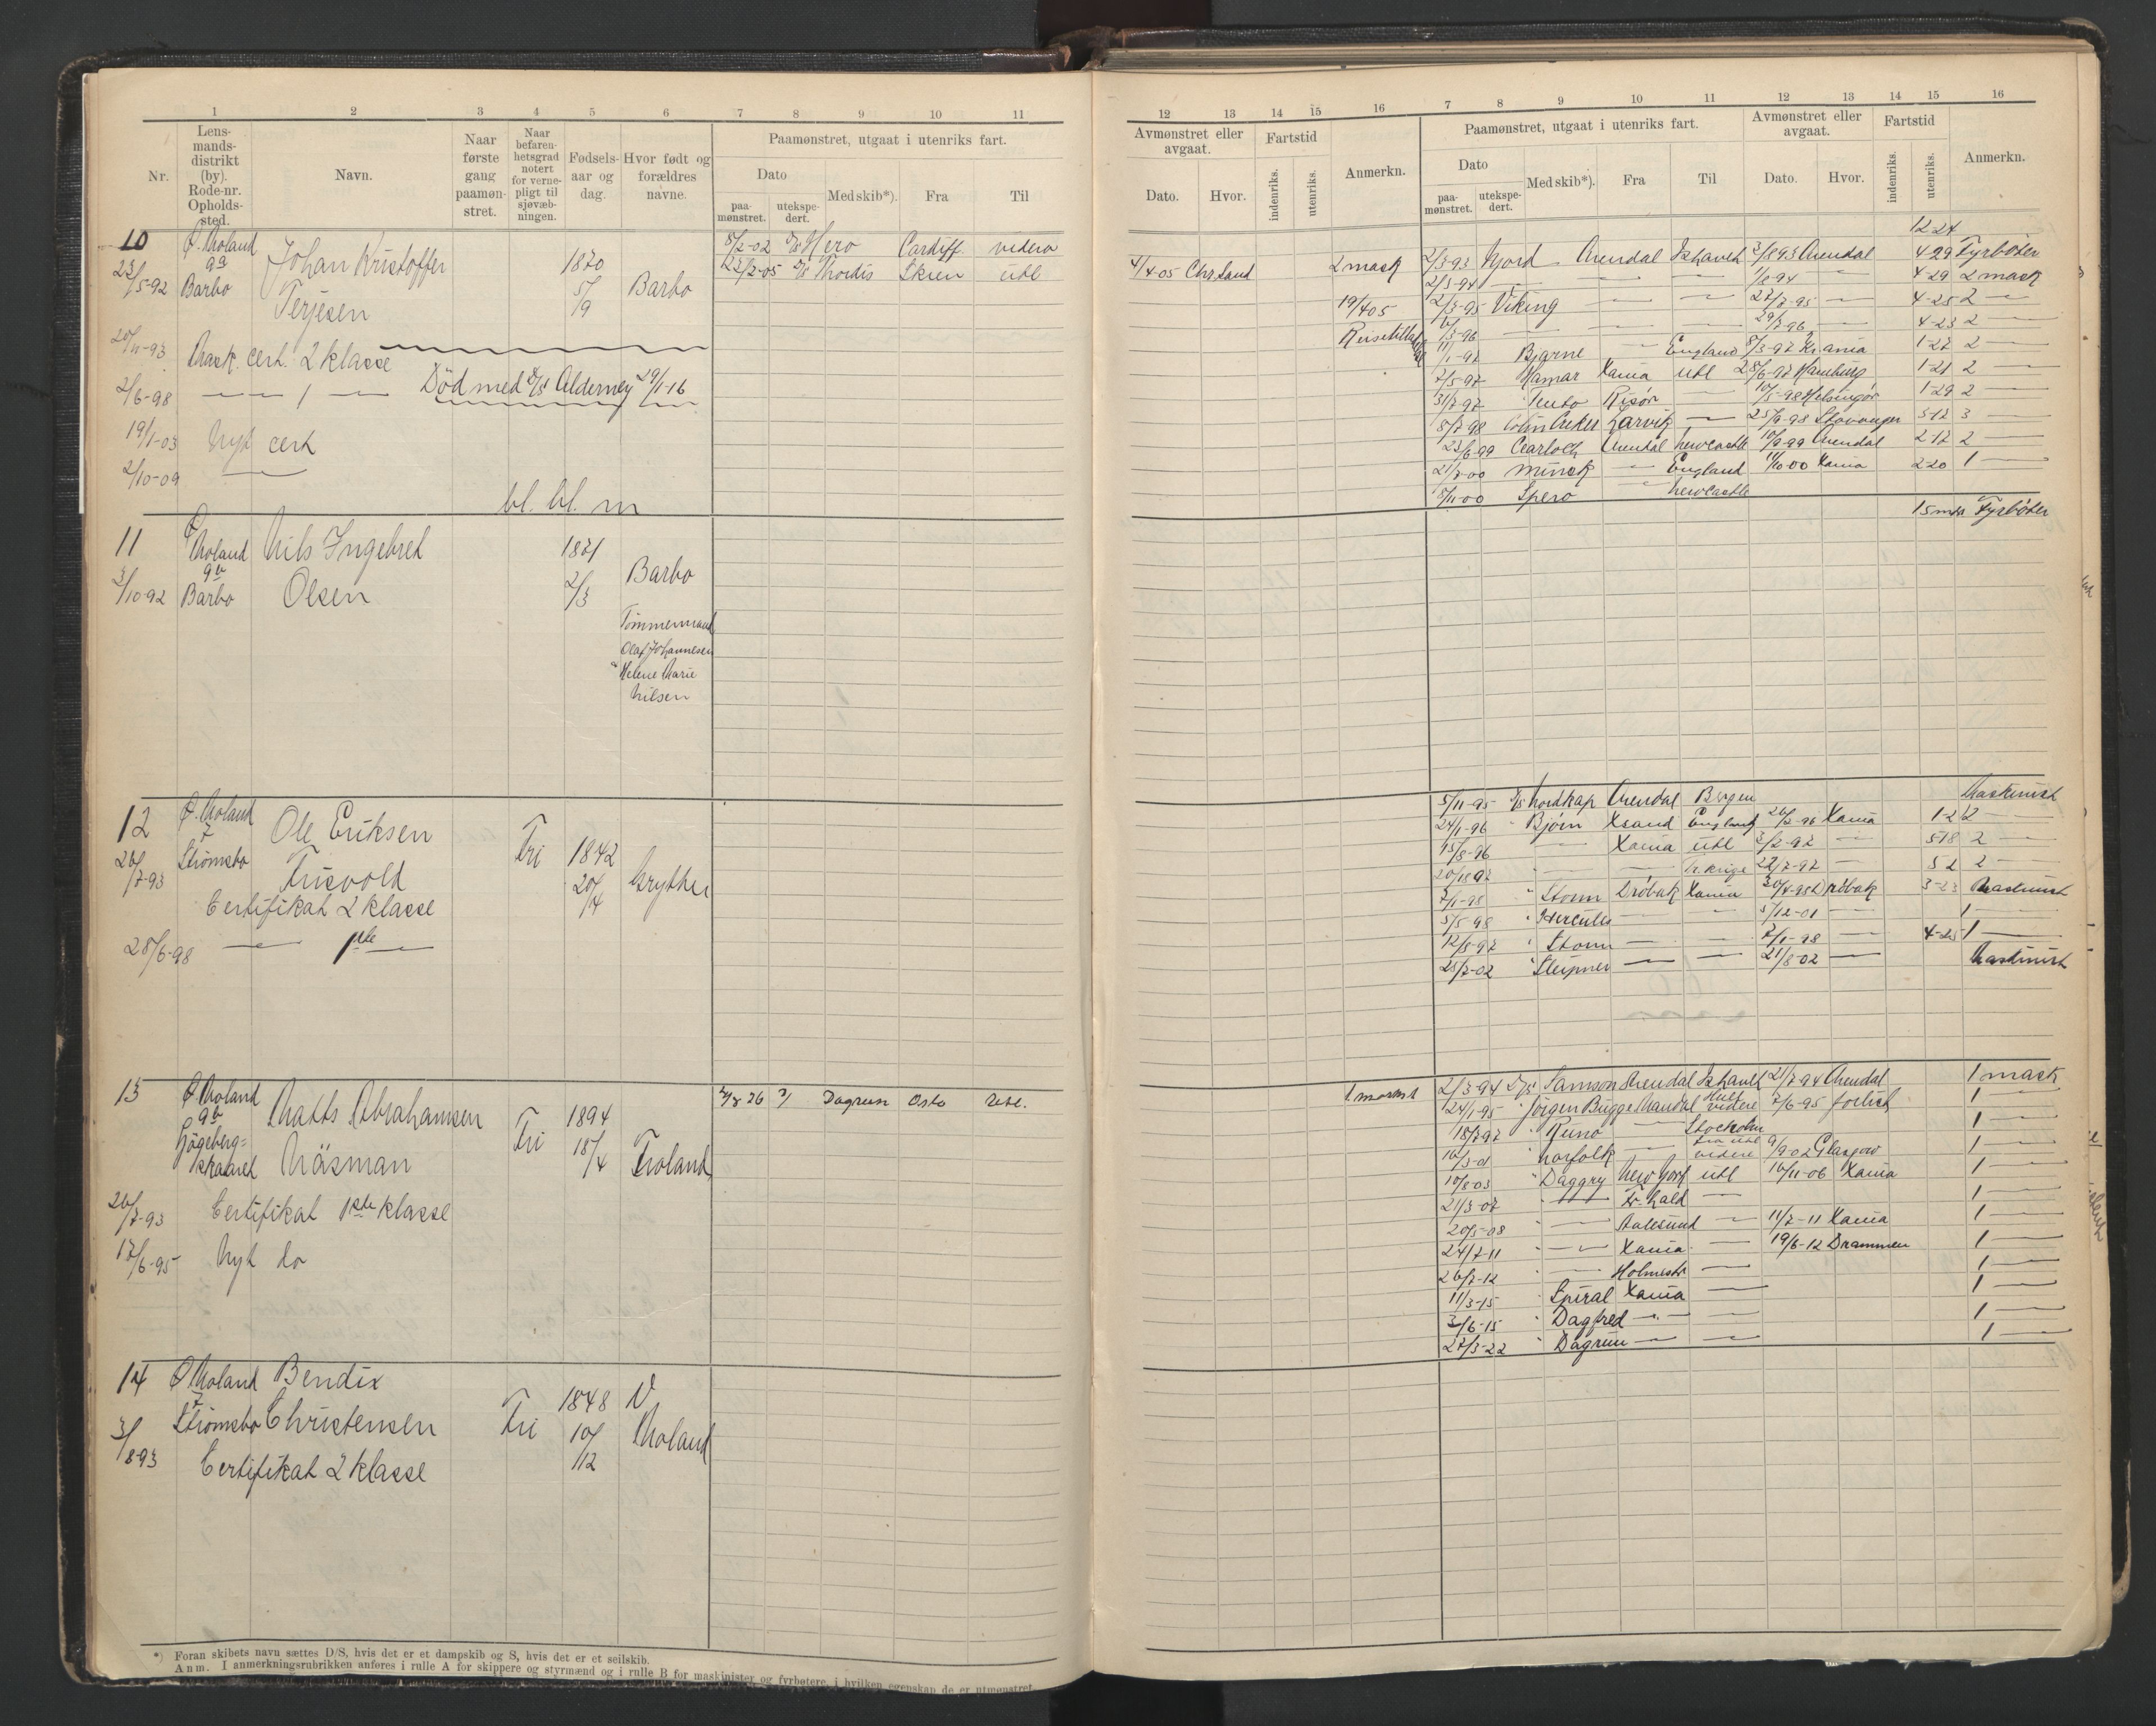 1 2 3 4 5 6 7 8 9 10 11
Nr. Lens-mands-distrikt (by). Rode-nr. Opholds-sted. Navn. Naar første gang paamøn-stret. Naar befaren-hetsgrad notert for verne-pligt til sjøvæb-ningen. Fødsels-aar og dag. Hvor født og forældres navne. Paamønstret, utgaat i utenriks fart.
Dato Med skib*). Fra Til
paa-mønstret. utekspe-dert.
10 Ø. Moland Johan Kristoffer 1870 8/2-02 D/S Hero Cardiff videre
9a 23/2-05 D/S Thordis Skien utl
23/5-92 Barbo Terjesen 5/9 Barbo
20/11-93 Mask. cert. 2 klasse
2/6-98 — — 1 — Død med D/S Alderney 29/1-16
19/1-03 Nyt cert
2/10-09 —
bl. bl. m
11 Ø Moland Nils Ingebret 1871
9b Barbo
3/10-92 Barbo Olsen 2/3
Tømmermand
Olaf Johannesen
Helene Marie
Nilsen
12 Ø. Moland Ole Eriksen Fri 1842
7
26/7-93 Strømsbo Trisvold 20/4 Grythe
Certifikat 2 klasse
28/6-98 — 1ste —
13 Ø Moland Matts Abrahamsen Fri 1894 26 Dagrun Oslo Utl.
9b 18/4 Froland
Høgeberg=
skaaret Näsman
26/7-93 Certifikat 1ste klasse
17/6-95 Nyt do
14 Ø Moland Bendix 1848 V
7
Strømsbo Christensen Fri 10/12 Moland
3/8-93 Certifikat 2 klasse
*) Foran skibets navn sættes D/S, hvis det er et dampskib og S, hvis det er et seilskib.
Anm. I anmerkningsrubrikken anføres i rulle A for skippere og styrmænd og i rulle B for maskinister og fyrbøtere, i hvilken egenskap de er utmønstret.
12 13 14 15 16 7 8 9 10 11 12 13 14 15 16
Avmønstret eller avgaat. Fartstid Anmerkn. Paamønstret, utgaat i utenriks fart. Avmønstret eller avgaat. Fartstid Anmerkn.
Dato. Hvor. indenriks. utenriks. Dato Med skib*). Fra Til Dato. Hvor. indenriks. utenriks.
paa-mønstret. utekspe-dert.
12 24
4/4-05 Chr.sand 2 mask 2/3-93 Njord Arendal Ishavet 3/8 93 Arendal 4-29 Fyrbøter
2/3-94 — — — 1/8-94 — 4-29 2 mask
19/4 05 2/3-95 Viking — — 27/7-95 — 4-25 2 —
Reisetilladelse /3-96 — — — 29/7-96 — 4-23 2 —
11/1-97 Bjarne — England 8/3-97 Kr.ania 1-27 2 —
7/5-97 Hamar Xania utl 28/6-97 Hamburg 1-21 2 —
31/7-97 Risør — 10/5-98 Helsingør 1-29 2 —
8/7-98 Larvik — 25/9-98 Stavanger 3-12 3 —
23/6-99 Arendal Newcastle 10/9-99 Arendal 2-17 2 —
21/7-00 Minsk — England 11/10-00 Xania 2-20 1 —
8/11-00 Spero — Newcastle
15 mdr Fyrbøter
5/11-95 D/S Nordkap Arendal Bergen Maskinist
24/1-96 " Bjørn Xsand England 26/2-96 Xania 1-2 2 —
15/8-96 — Xania utl 3/2-97 — 5-18 2 —
20/1897 — — 22/7-97 — 5 2 2 —
7/1-98 " Storm Drøbak Xania 30/4-98 Drøbak 3-23 Maskinist
5/5-98 " Hercules — — 5/12-01 — 1 —
12/8-97 " Storm — — 7/1-98 — 4-25 1 —
25/2-02 " Sleipner — — 21/8-02 — Maskinist
1 maskinist 2/3-94 D/S Samson Arendal Ishavet 21/7-94 Arendal 1 mask
24/1-95 " Jørgen Bugge Mandal Hull videre 7/6-95 forlist 1 —
18/7-97 " Runo — Stockholm 1 —
16/3-01 " Norfolk — fra utl videre 9/9-02 Glasgow 1 —
10/8-03 " Daggry New York utl 16/11-06 Xania 1 —
21/3-07 " — Fr.hald — 1 —
20/5-08 — Aalesund — 11/7-11 Xania 1 —
24/7-11 " — Xania — 19/6-12 Drammen 1 —
26/7-12 " — Holmestr — 1 —
11/3-15 " Spiral Xania — 1 —
3/6-15 " Dagfred — — 1 —
27/3-22 " Dagrun — — 1 —